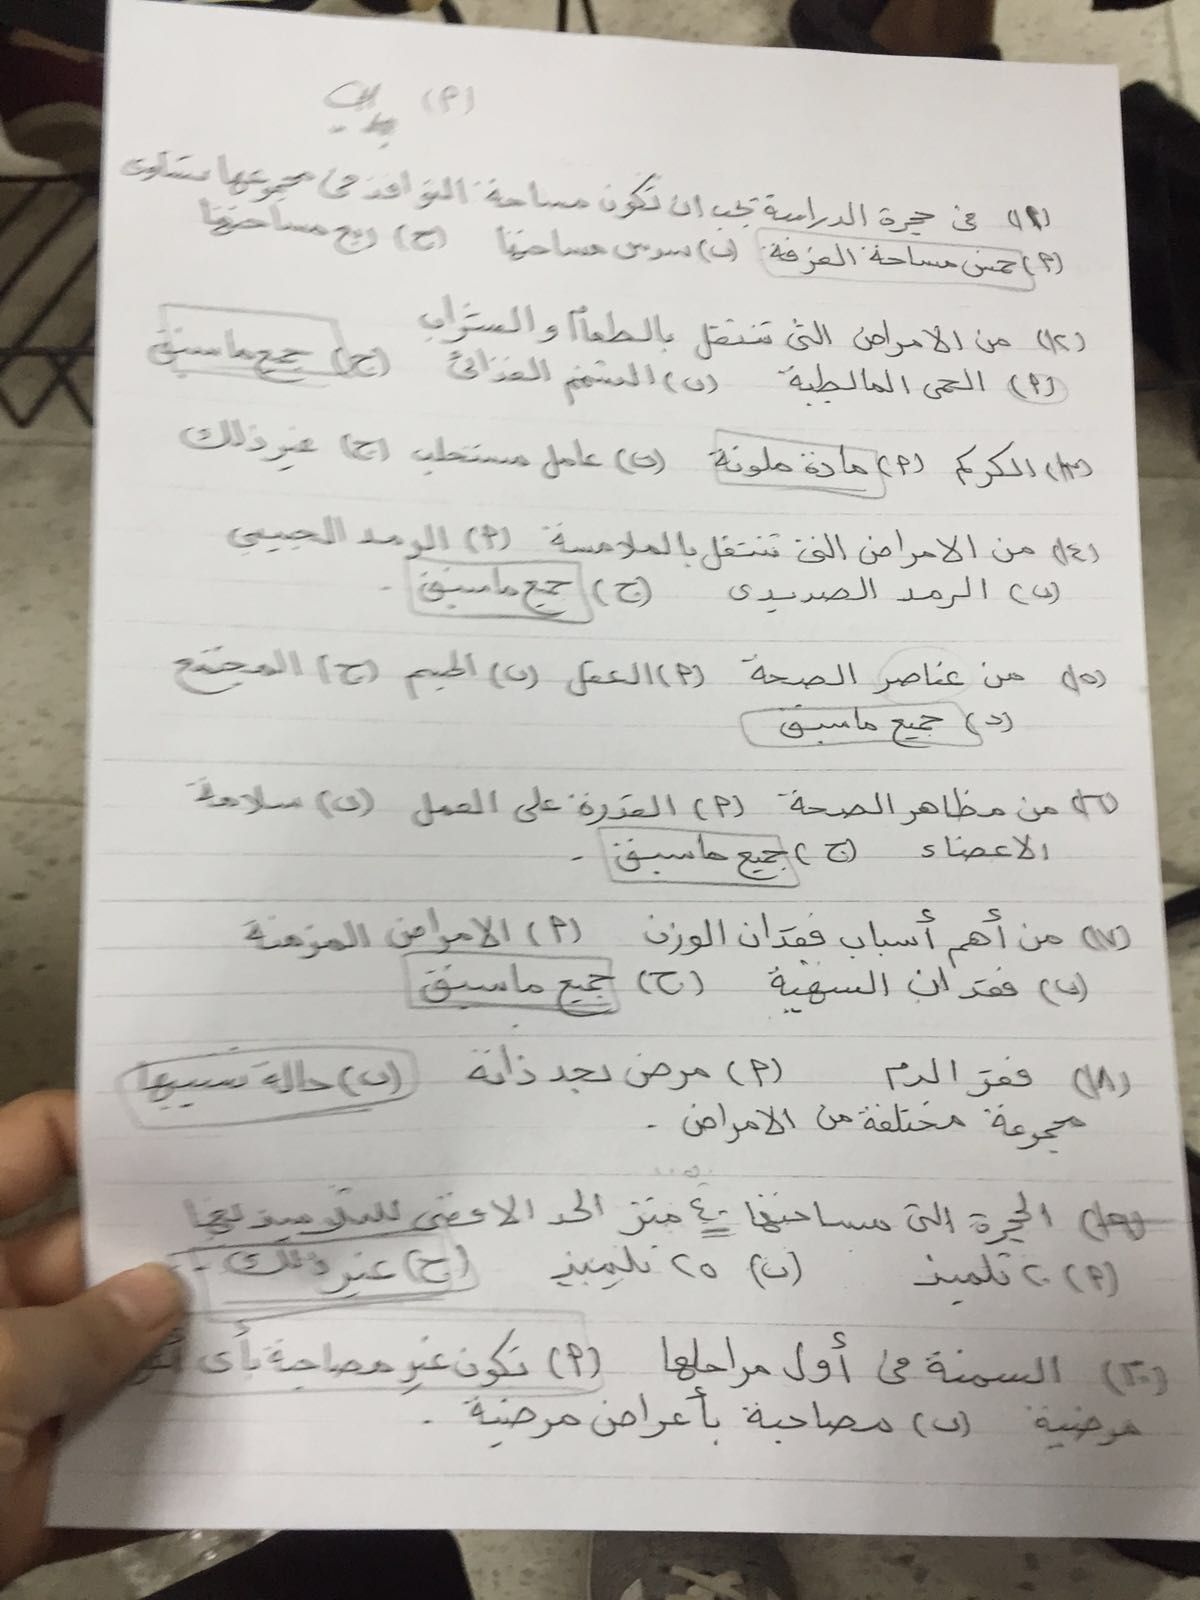 (٢)
(١١ فى حجرة الدراسة يجب ان تكون مساحة النوافذ فى مجموعها تساوى
(٢) خمس مساحة الغرفة (ب) سدس مساحتها (ج) ربع مساحتها
(١٢ من الامراض التى تنتقل بالطعام و الشراب
(٢) الحمى المالطية (ب) التسمم الغذائى (ج) جميع ماسبق
(١٣ الكركم (٢) مادة ملونة (ب) عامل مستحلب (ج) غير ذلك
(١٤ من الامراض التى تنتقل بالملامسة (٢) الرمد الحبيبى
(ب) الرمد الصديدى (ج) جميع ماسبق .
(١٥ من عناصر الصحة (٢) العقل (ب) الجسم (ج) المجتمع
(د) جميع ماسبق
(١٦ من مظاهر الصحة (٢) القدرة على العمل (ب) سلامة
الاعضاء (ج) جميع ماسبق .
(١٧ من أهم أسباب فقدان الوزن (٢) الامراض المزمنة
(ب) فقدان الشهية (ج) جميع ماسبق
(١٨ فقر الدم (٢) مرض بحد ذاته (ب) حالة تسببها
مجموعة مختلفة من الامراض .
(١٩ الحجرة التى مساحتها ٤٠ متر الحد الاقصى للتلاميذ بها
(٢) ٢٠ تلميذ (ب) ٢٥ تلميذ (ج) غير ذلك .
(٢٠ السمنة فى أول مراحلها (٢) تكون غير مصاحبة بأى
مرضية (ب) مصاحبة بأعراض مرضية .